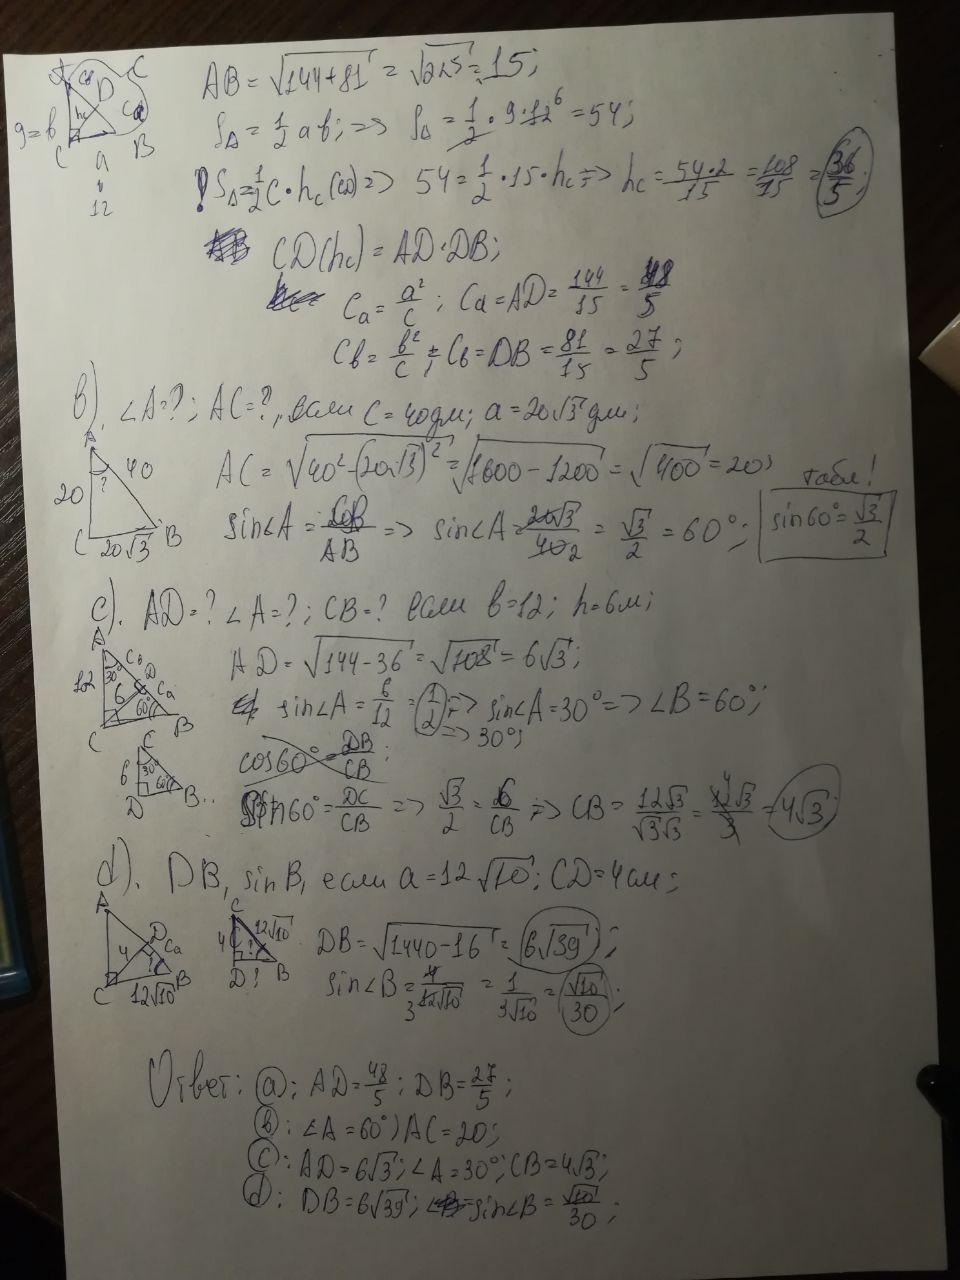 A C C_b D h_c C_a 9=b C a B 12
AB = √144+81 = √225 = 15;
S_Δ = 1/2 ab; => S_Δ = 1/2 · 9 · 12 6 = 54;
! S_Δ = 1/2 c · h_c (CD) => 54 = 1/2 · 15 · h_c => h_c = 54·2/15 = 108/15 = 36/5;
CD(h_c) = AD·DB;
C_a = a²/c; C_a = AD = 144/15 = 48/5
C_b = b²/c; C_b = DB = 81/15 = 27/5;
b). ∠A=?; AC=?, если c = 40дм; a = 20√3 дм;
A 40 20 ? C 20√3 B
AC = √40²-(20√3)² = √1600-1200 = √400 = 20;
табл!
sin∠A = CB/AB => sin∠A = 20√3/40 2 = √3/2 = 60°;
sin60° = √3/2
c). AD=? ∠A=?; CB=? если b=12; h=6м;
A 12 30° C_b D C_a 6 60° C B
AD = √144-36 = √108 = 6√3;
sin∠A = 6/12 = 1/2 => sin∠A = 30° => ∠B = 60°;
=> 30°;
C 6 30° 60° D B
cos60° = DB/CB;
sin60° = DC/CB => √3/2 = 6/CB => CB = 12√3/√3√3 = 12 4√3/3 = 4√3;
d). DB, sinB, если a = 12√10; CD = 4см;
A 4 D C_a ? C 12√10 B
C 4 12√10 ? D ? B
DB = √1440-16 = 6√39;
sin∠B = 4/12√10 3 = 1/3√10 = √10/30;
Ответ: a: AD = 48/5; DB = 27/5;
b: ∠A = 60°; AC = 20;
c: AD = 6√3; ∠A = 30°; CB = 4√3;
d: DB = 6√39; sin∠B = √10/30;